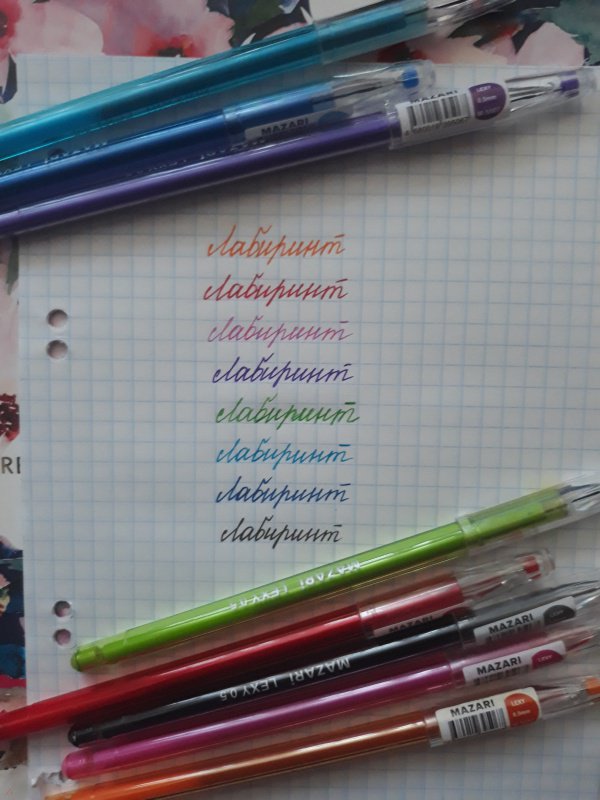 MAZARI LEXY 0.5mm
MAZARI
MAZARI LEXY
Лабиринт
Лабиринт
Лабиринт
Лабиринт
Лабиринт
Лабиринт
Лабиринт
Лабиринт
RE
MAZARI LEXY 0.5
MAZARI
MAZARI
MAZARI LEXY 0.5
MAZARI LEXY
MAZARI LEXY 0.5mm